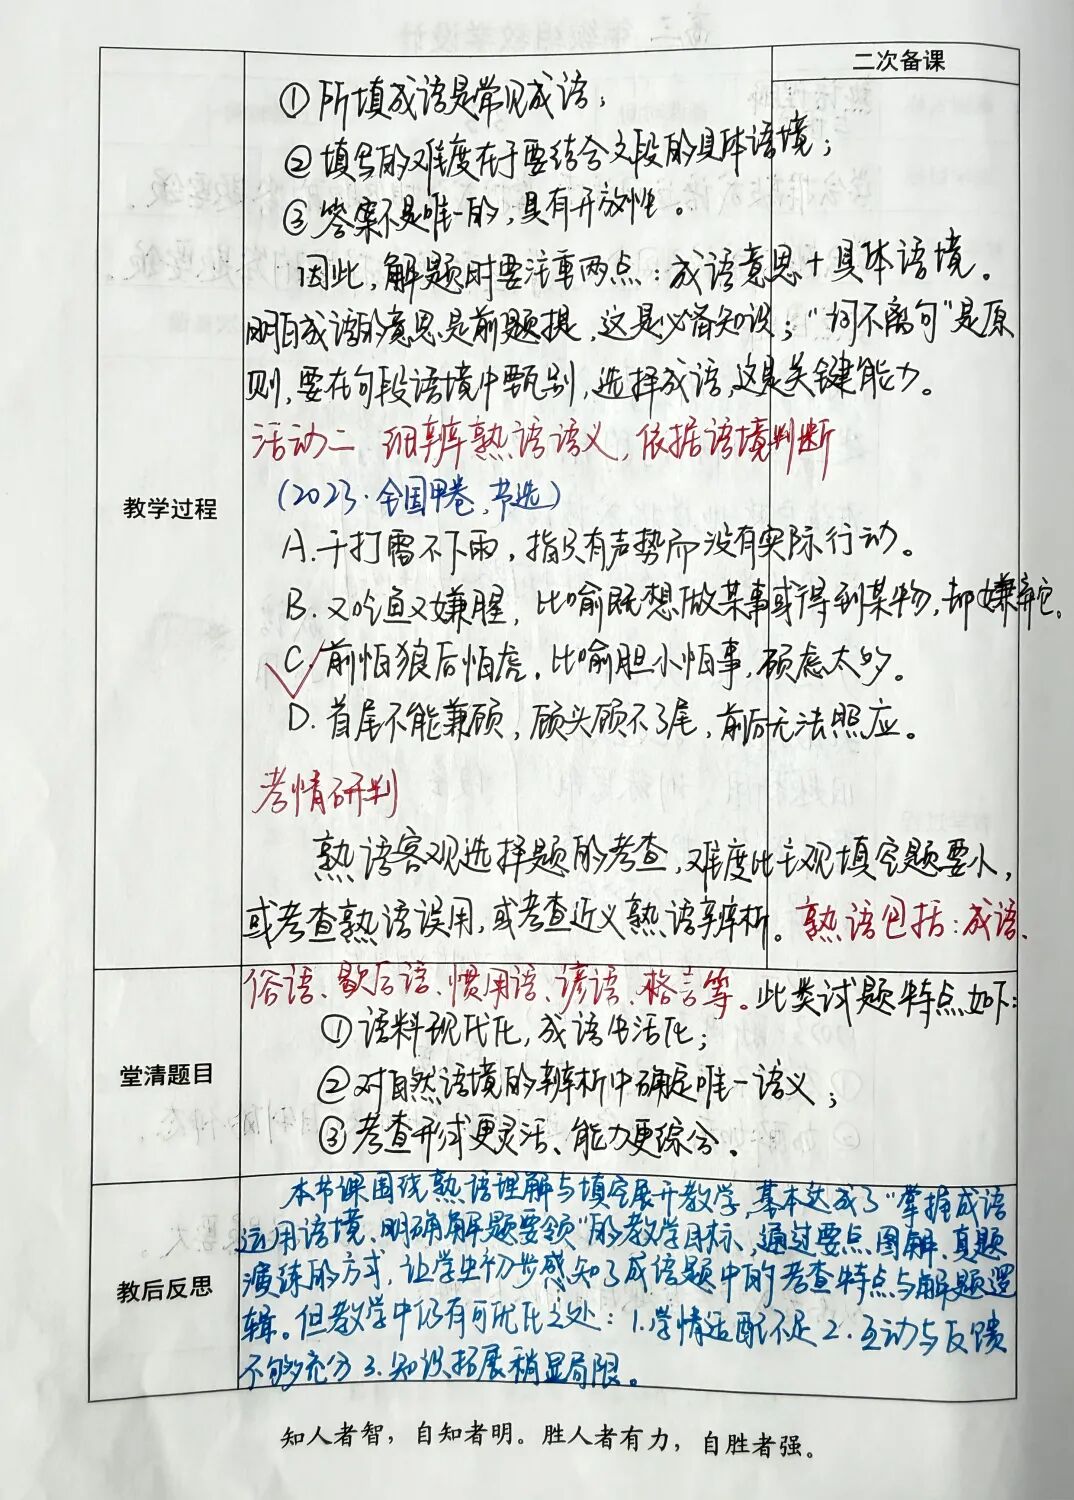 二次备课
①所填成语是常见成语；
②填写的难度在于要结合文段的具体语境；
③答案不是唯一的，具有开放性。
因此，解题时要注重两点：成语意思＋具体语境。
明白成语的意思是前题提，这是必备知识；“词不离句”是原
则，要在句段语境中甄别，选择成语，这是关键能力。
活动二 细辨熟语语义，依据语境判断
（2023·全国甲卷，节选）
教学过程
A.干打雷不下雨，指只有声势而没有实际行动。
B.又吃鱼又嫌腥，比喻既想做某事或得到某物，却嫌弃它。
C.前怕狼后怕虎，比喻胆小怕事，顾虑太多。
D.首尾不能兼顾，顾头顾不了尾，前后无法照应。
考情研判
熟语客观选择题的考查，难度比主观填空题要小，
或考查熟语误用，或考查近义熟语辨析。熟语包括：成语、
俗语、歇后语、惯用语、谚语、格言等。此类试题特点如下：
①语料现代化，成语生活化；
堂清题目
②对自然语境的辨析中确定唯一语义；
③考查形式更灵活、能力更综合。
本节课围绕熟语理解与填空展开教学，基本达成了“掌握成语
运用语境、明确解题要领”的教学目标，通过要点图解、真题
演练的方式，让学生初步感知了成语题中的考查特点与解题逻
教后反思
辑。但教学中仍有可优化之处：1.学情适配不足 2.互动与反馈
不够充分 3.知识拓展稍显局限。
知人者智，自知者明。胜人者有力，自胜者强。